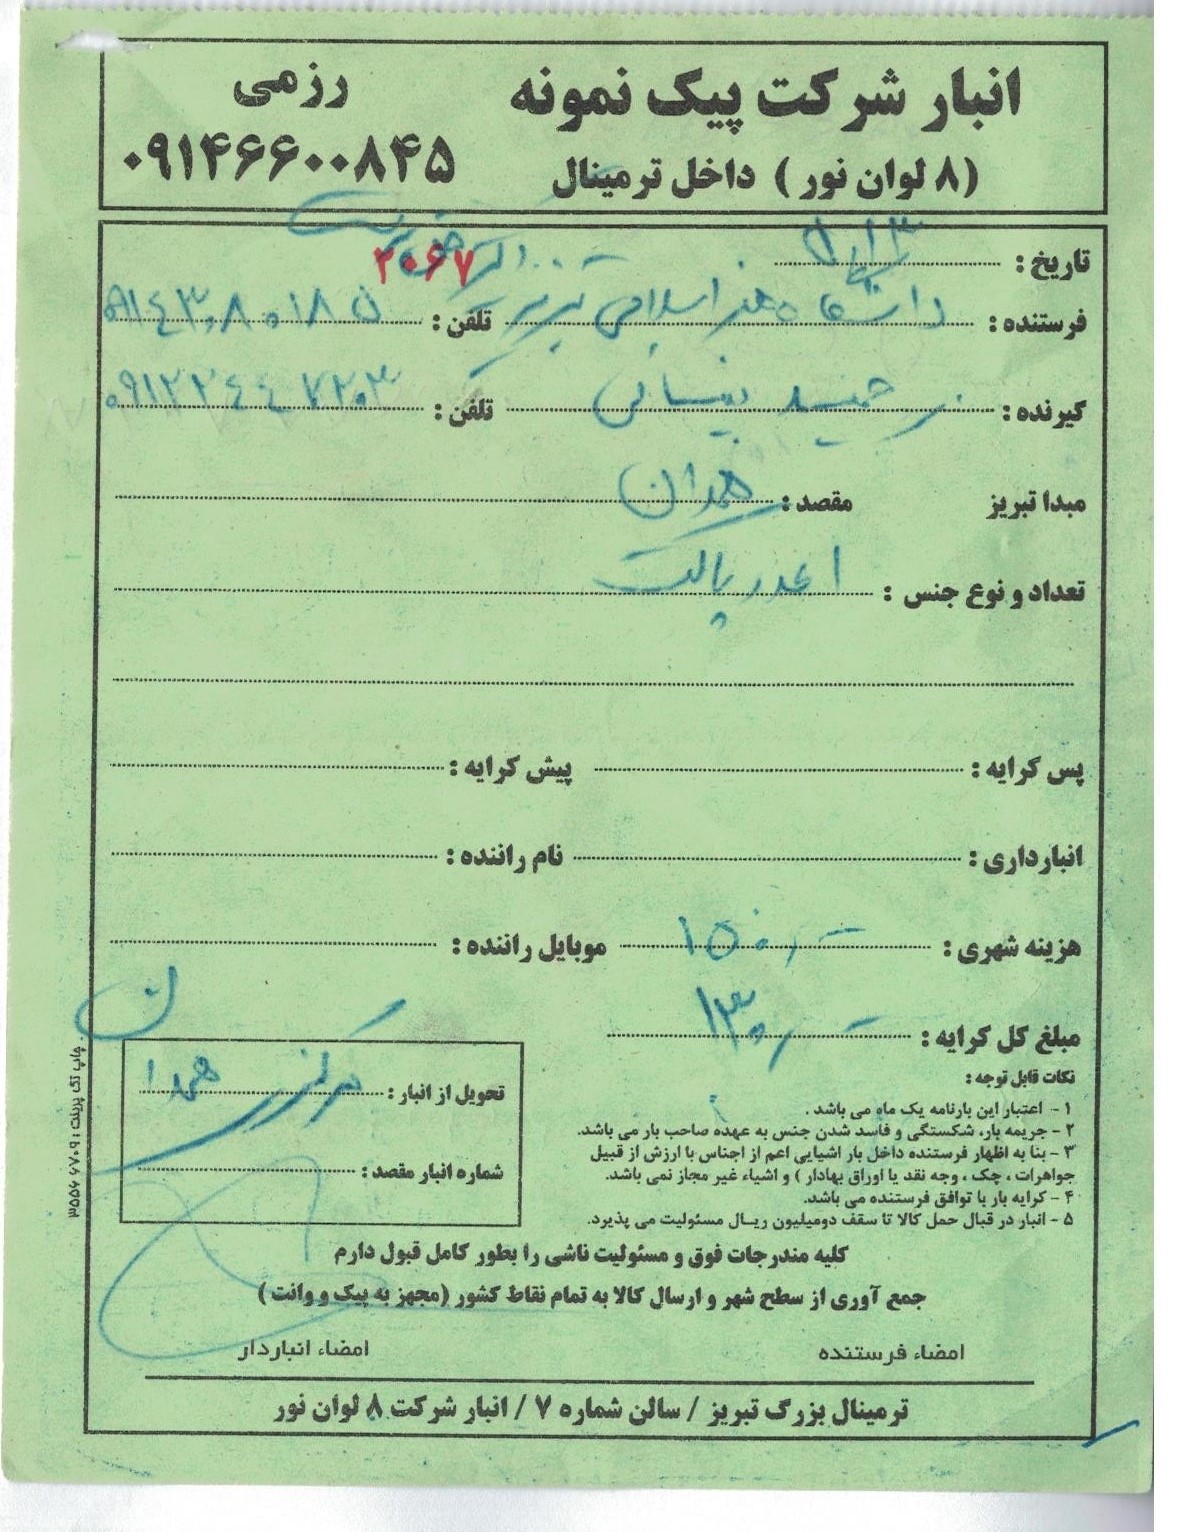 انبار شرکت پیک نمونه
رزمی
(۸ لوان نور) داخل ترمینال
۰۹۱۴۶۶۰۰۸۴۵
تاریخ :
۲۰۶۷
فرستنده : دانشگاه هنر اسلامی تبریز تلفن : ۰۹۱۴۳۰۸۰۱۸۵
گیرنده : تلفن : ۰۹۱۲۲۴۴۷۲۰۳
مبدا تبریز مقصد : همدان
تعداد و نوع جنس : ۱ عدد پاکت
پس کرایه : پیش کرایه :
انبارداری : نام راننده :
هزینه شهری : ۱۵۰/ موبایل راننده :
مبلغ کل کرایه : ۱۳۰/
نکات قابل توجه :
۱ - اعتبار این بارنامه یک ماه می باشد .
۲ - جریمه بار، شکستگی و فاسد شدن جنس به عهده صاحب بار می باشد.
۳ - بنا به اظهار فرستنده داخل بار اشیایی اعم از اجناس با ارزش از قبیل
جواهرات ، چک ، وجه نقد یا اوراق بهادار ) و اشیاء غیر مجاز نمی باشد.
۴ - کرایه بار با توافق فرستنده می باشد.
۵ - انبار در قبال حمل کالا تا سقف دومیلیون ریـال مسئولیت می پذیرد.
تحویل از انبار : همدان
شماره انبار مقصد :
چاپ تک پرینت : ۳۵۵۶۶۷۰۹
کلیه مندرجات فوق و مسئولیت ناشی را بطور کامل قبول دارم
جمع آوری از سطح شهر و ارسال کالا به تمام نقاط کشور (مجهز به پیک و وانت )
امضاء فرستنده
امضاء انباردار
ترمینال بزرگ تبریز / سالن شماره ۷ / انبار شرکت ۸ لوان نور